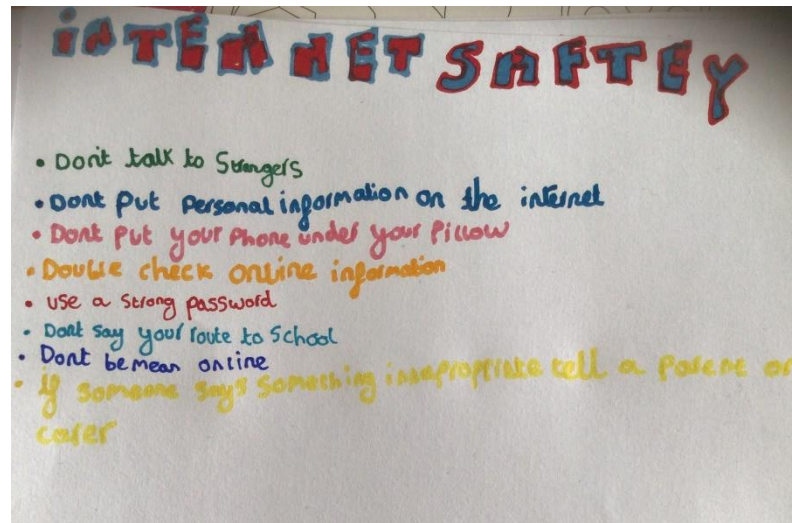 iNTERNET SAFTEY
• Don't talk to Strangers
• Dont put personal information on the internet
• Dont put your Phone under your Pillow
• Double check online information
• use a strong password
• Dont say your route to School
• Dont be mean online
• if someone says something inapropriate tell a Parent or
carer